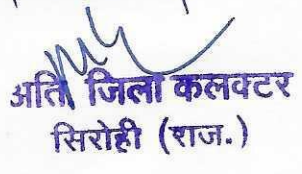 अति जिला कलक्टर
सिरोही (राज.)